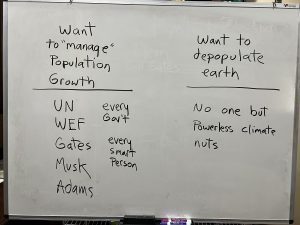 Want
to "manage"
Population
Growth
UN
WEF
Gates
Musk
Adams
every
Gov't
every
smart
Person
Want to
depopulate
earth
No one but
Powerless climate
nuts